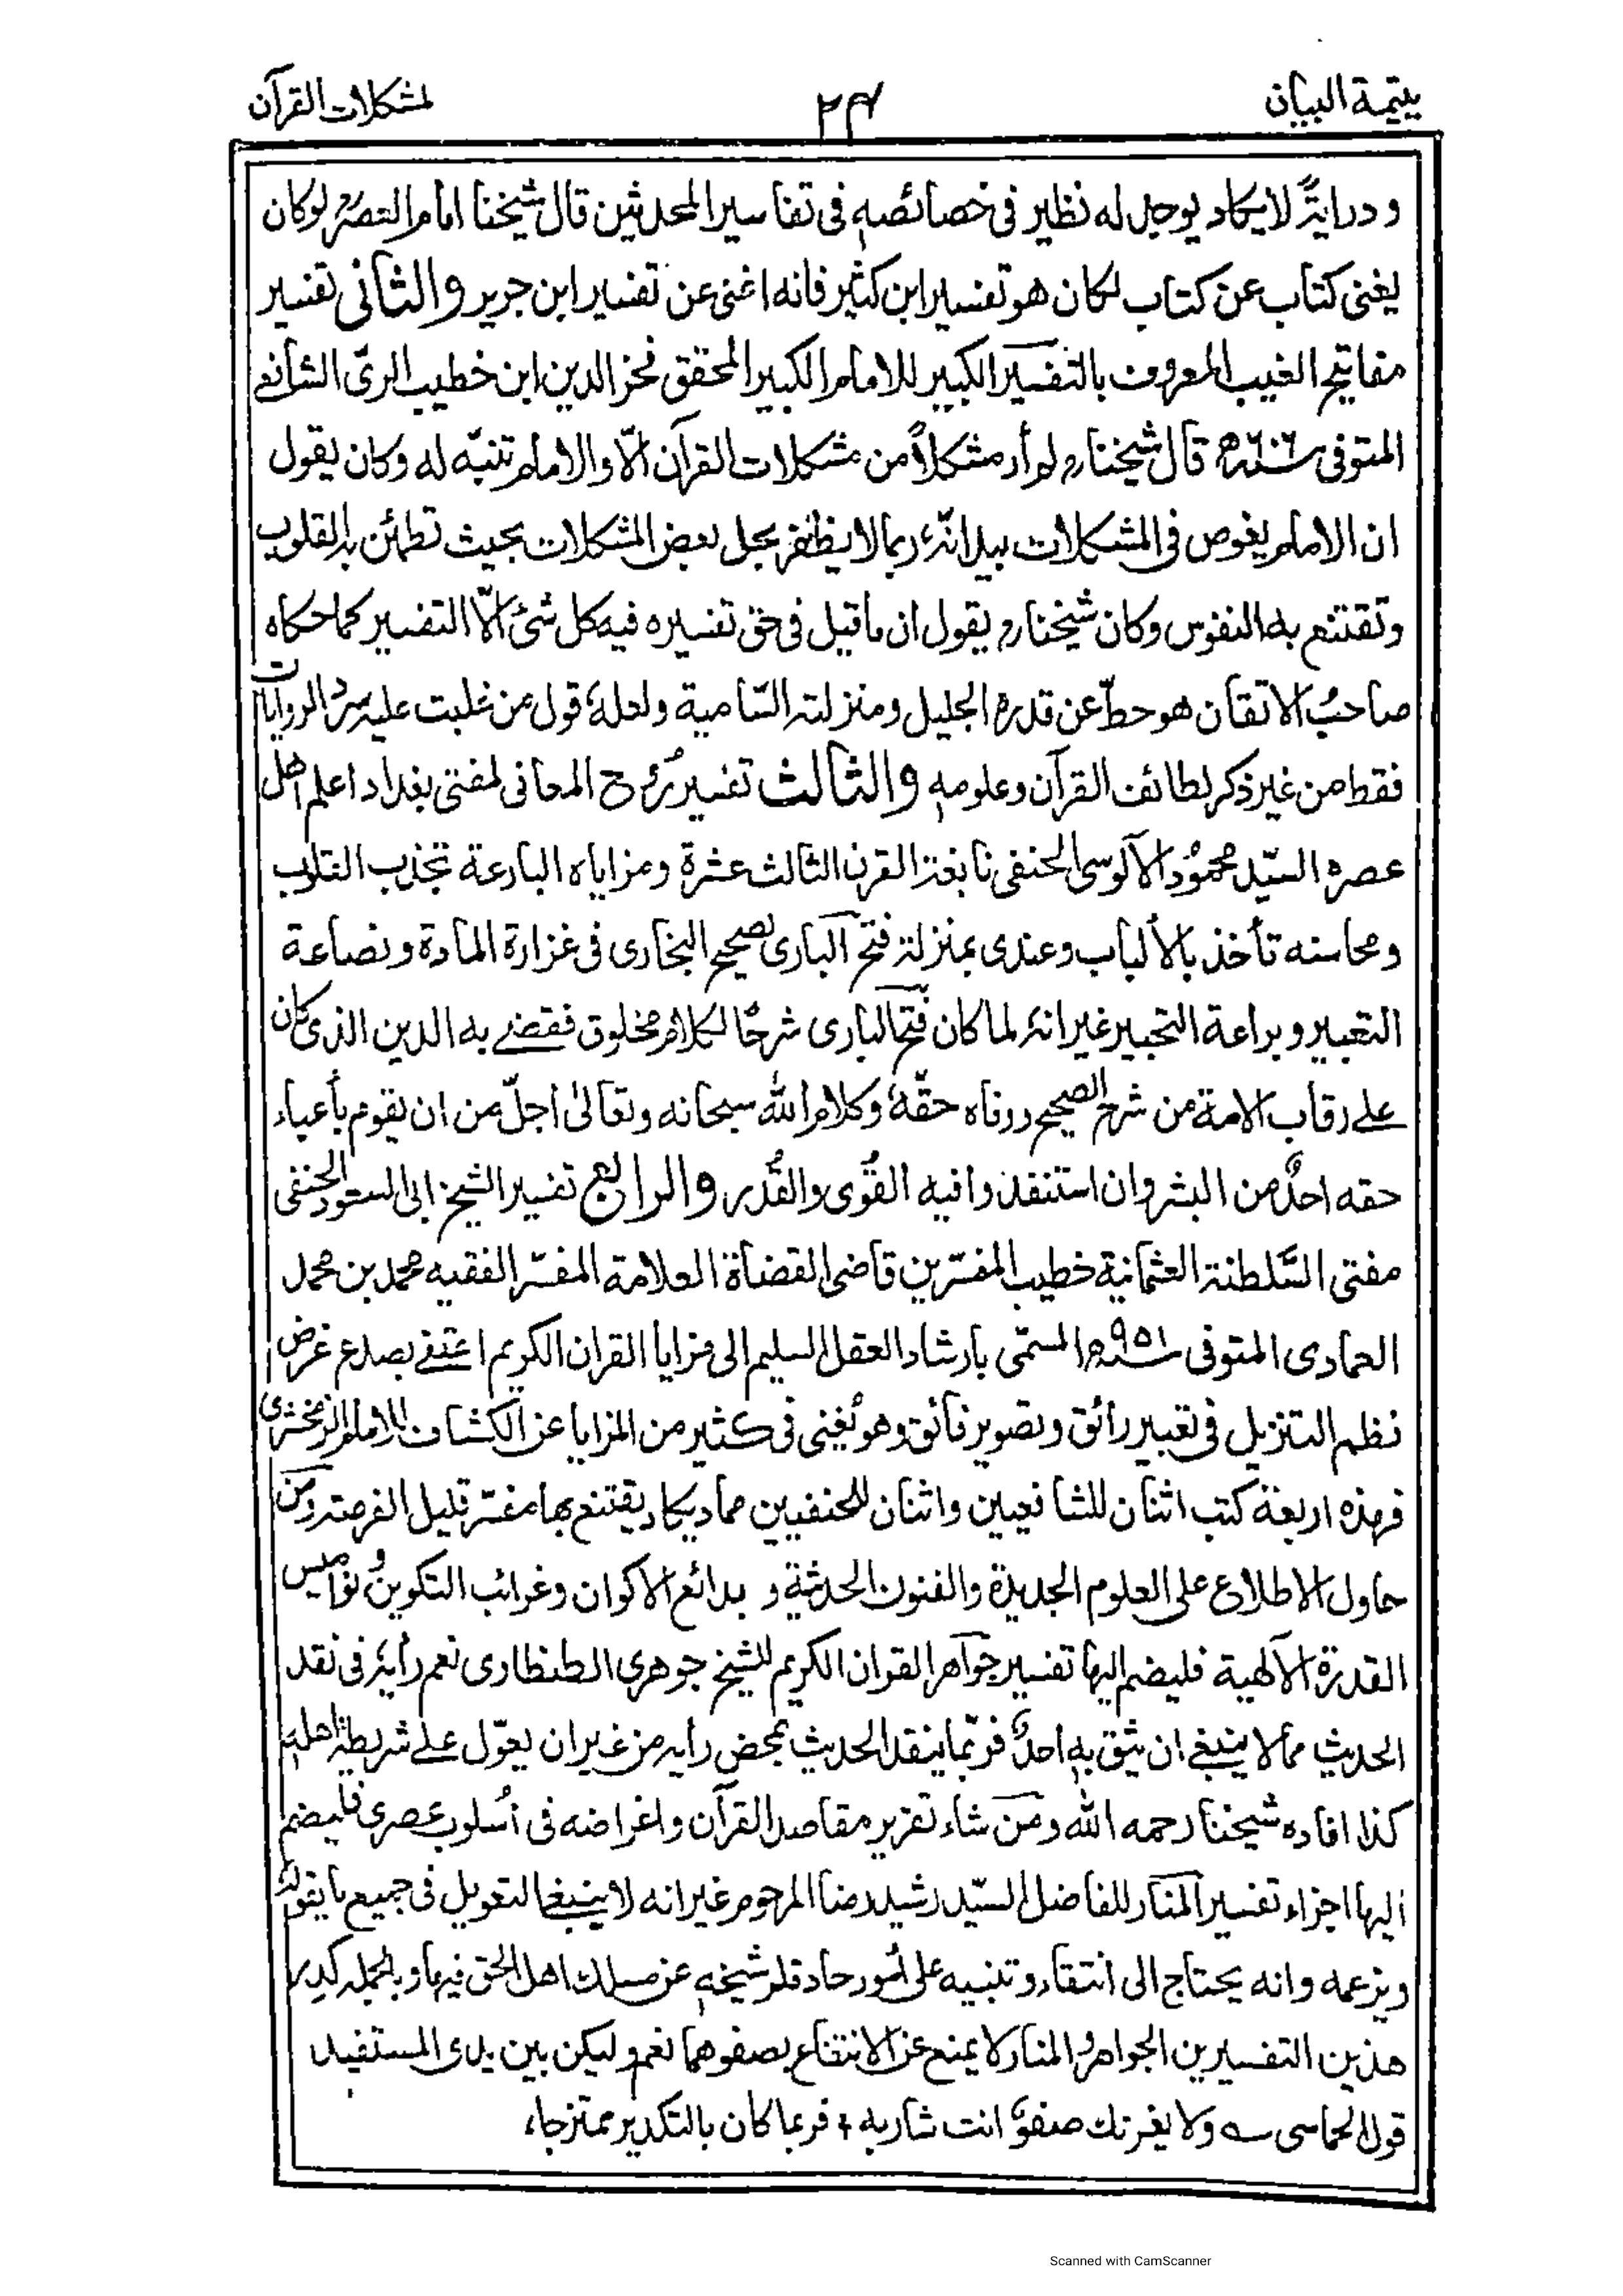 يتيمة البيان ٢٤ لمشكلات القرآن
و دراية لا يكاد يوجد له نظير فى خصائصه فى تفاسير المحدثين قال شيخنا امام العصر لو كان
يغنى كتاب عن كتاب لكان هو تفسير ابن كثير فانه اغنى عن تفسير ابن جرير والثانى تفسير
مفاتيح الغيب المعروف بالتفسير الكبير للامام الكبير المحقق فخر الدين ابن خطيب الرىّ الشافعى
المتوفى سنه ٦٠٦ھ قال شيخنا رح لم أر مشكلاً من مشكلات القرآن الّا والامام تنبّه له وكان يقول
ان الامام يغوص فى المشكلات بيد انّه ربما لا يظفر بحل بعض المشكلات بحيث تطمئن به القلوب
وتقتنع به النفوس وكان شيخنا رح يقول ان ما قيل فى حق تفسيره فيه كل شئ الّا التفسير كما حكاه
صاحبُ الاتقان هو حطّ عن قدره الجليل ومنزلته السّامية ولعله قول من غلبت عليه سرد الروايات
فقط من غير ذكر لطائف القرآن وعلومه والثالث تفسير رُوح المعانى لمفتى بغداد اعلم اهل
عصره السيّد محمُود الآلوسى الحنفى نابغة القرن الثالث عشرة ومزاياه البارعة تجذب القلوب
ومحاسنه تأخذ بالألباب وعندى بمنزلة فتح البارى لصحيح البخارى فى غزارة المادة ونصاعة
التعبير وبراعة التحبير غير انه لما كان فتح البارى شرحًا لكلام مخلوق فقضے به الدين الذى كان
علے رقاب الامة من شرح الصحيح ورفاه حقّه وكلام الله سبحانه وتعالى اجلّ من ان يقوم بأعباء
حقه احدٌ من البشر وان استنفدوا فيه القُوى والقُدر والرابع تفسير الشيخ ابى السعود الحنفى
مفتى السَّلطنة العثمانية خطيب المفسّرين قاضى القضاة العلامة المفسّر الفقيه محمد بن محمد
العمادى المتوفى سنه ٩٥١ھ المسمّى بارشاد العقل السليم الى مزايا القران الكريم اعتنے بصدع غرض
نظم التنزيل فى تعبير رائق وتصوير فائق وهو يُغنى فى كثير من المزايا عن الكشاف للامام الزمخشرى
فهذه اربعة كتب اثنان للشافعيين واثنان للحنفيين مما يكاد يقتنع بها مفسّر قليل الفرصة ومن
حاول الاطلاع على العلوم الجديدة والفنون الحديثة و بدائع الاكوان وغرائب التكوين ونواميس
القدرة الآلٰهية فليضم اليها تفسير جواهر القران الكريم للشيخ جوهرى الطنطاوى نعم رأيه فى نقد
الحديث مما لا ينبغے ان يثق به احدٌ فربّما ينقد الحديث بمحض رأيه من غير ان يعوّل علے شريطة اهله
كذا افاده شيخنا رحمه الله ومَن شاء تقرير مقاصد القرآن واغراضه فى أسلوب عصرى فليضم
اليها اجزاء تفسير المنار للفاضل السيّد رشيد رضا المرحوم غير انه لا ينبغے التعويل فى جميع ما يقوله
ويزعمه وانه يحتاج الى انتقاء وتنبيه على أمور حاد قلم شيخه عن مسلك اهل الحق فيها وبالجملة كدر
هذين التفسيرين الجواهر والمنار لا يمنع عن الانتفاع بصفوهما نعم وليكن بين يدى المستفيد
قول الحماسى ؎ ولا يغرنك صفوٌ انت شاربه + فربما كان بالتكدير ممتزجا،
Scanned with CamScanner